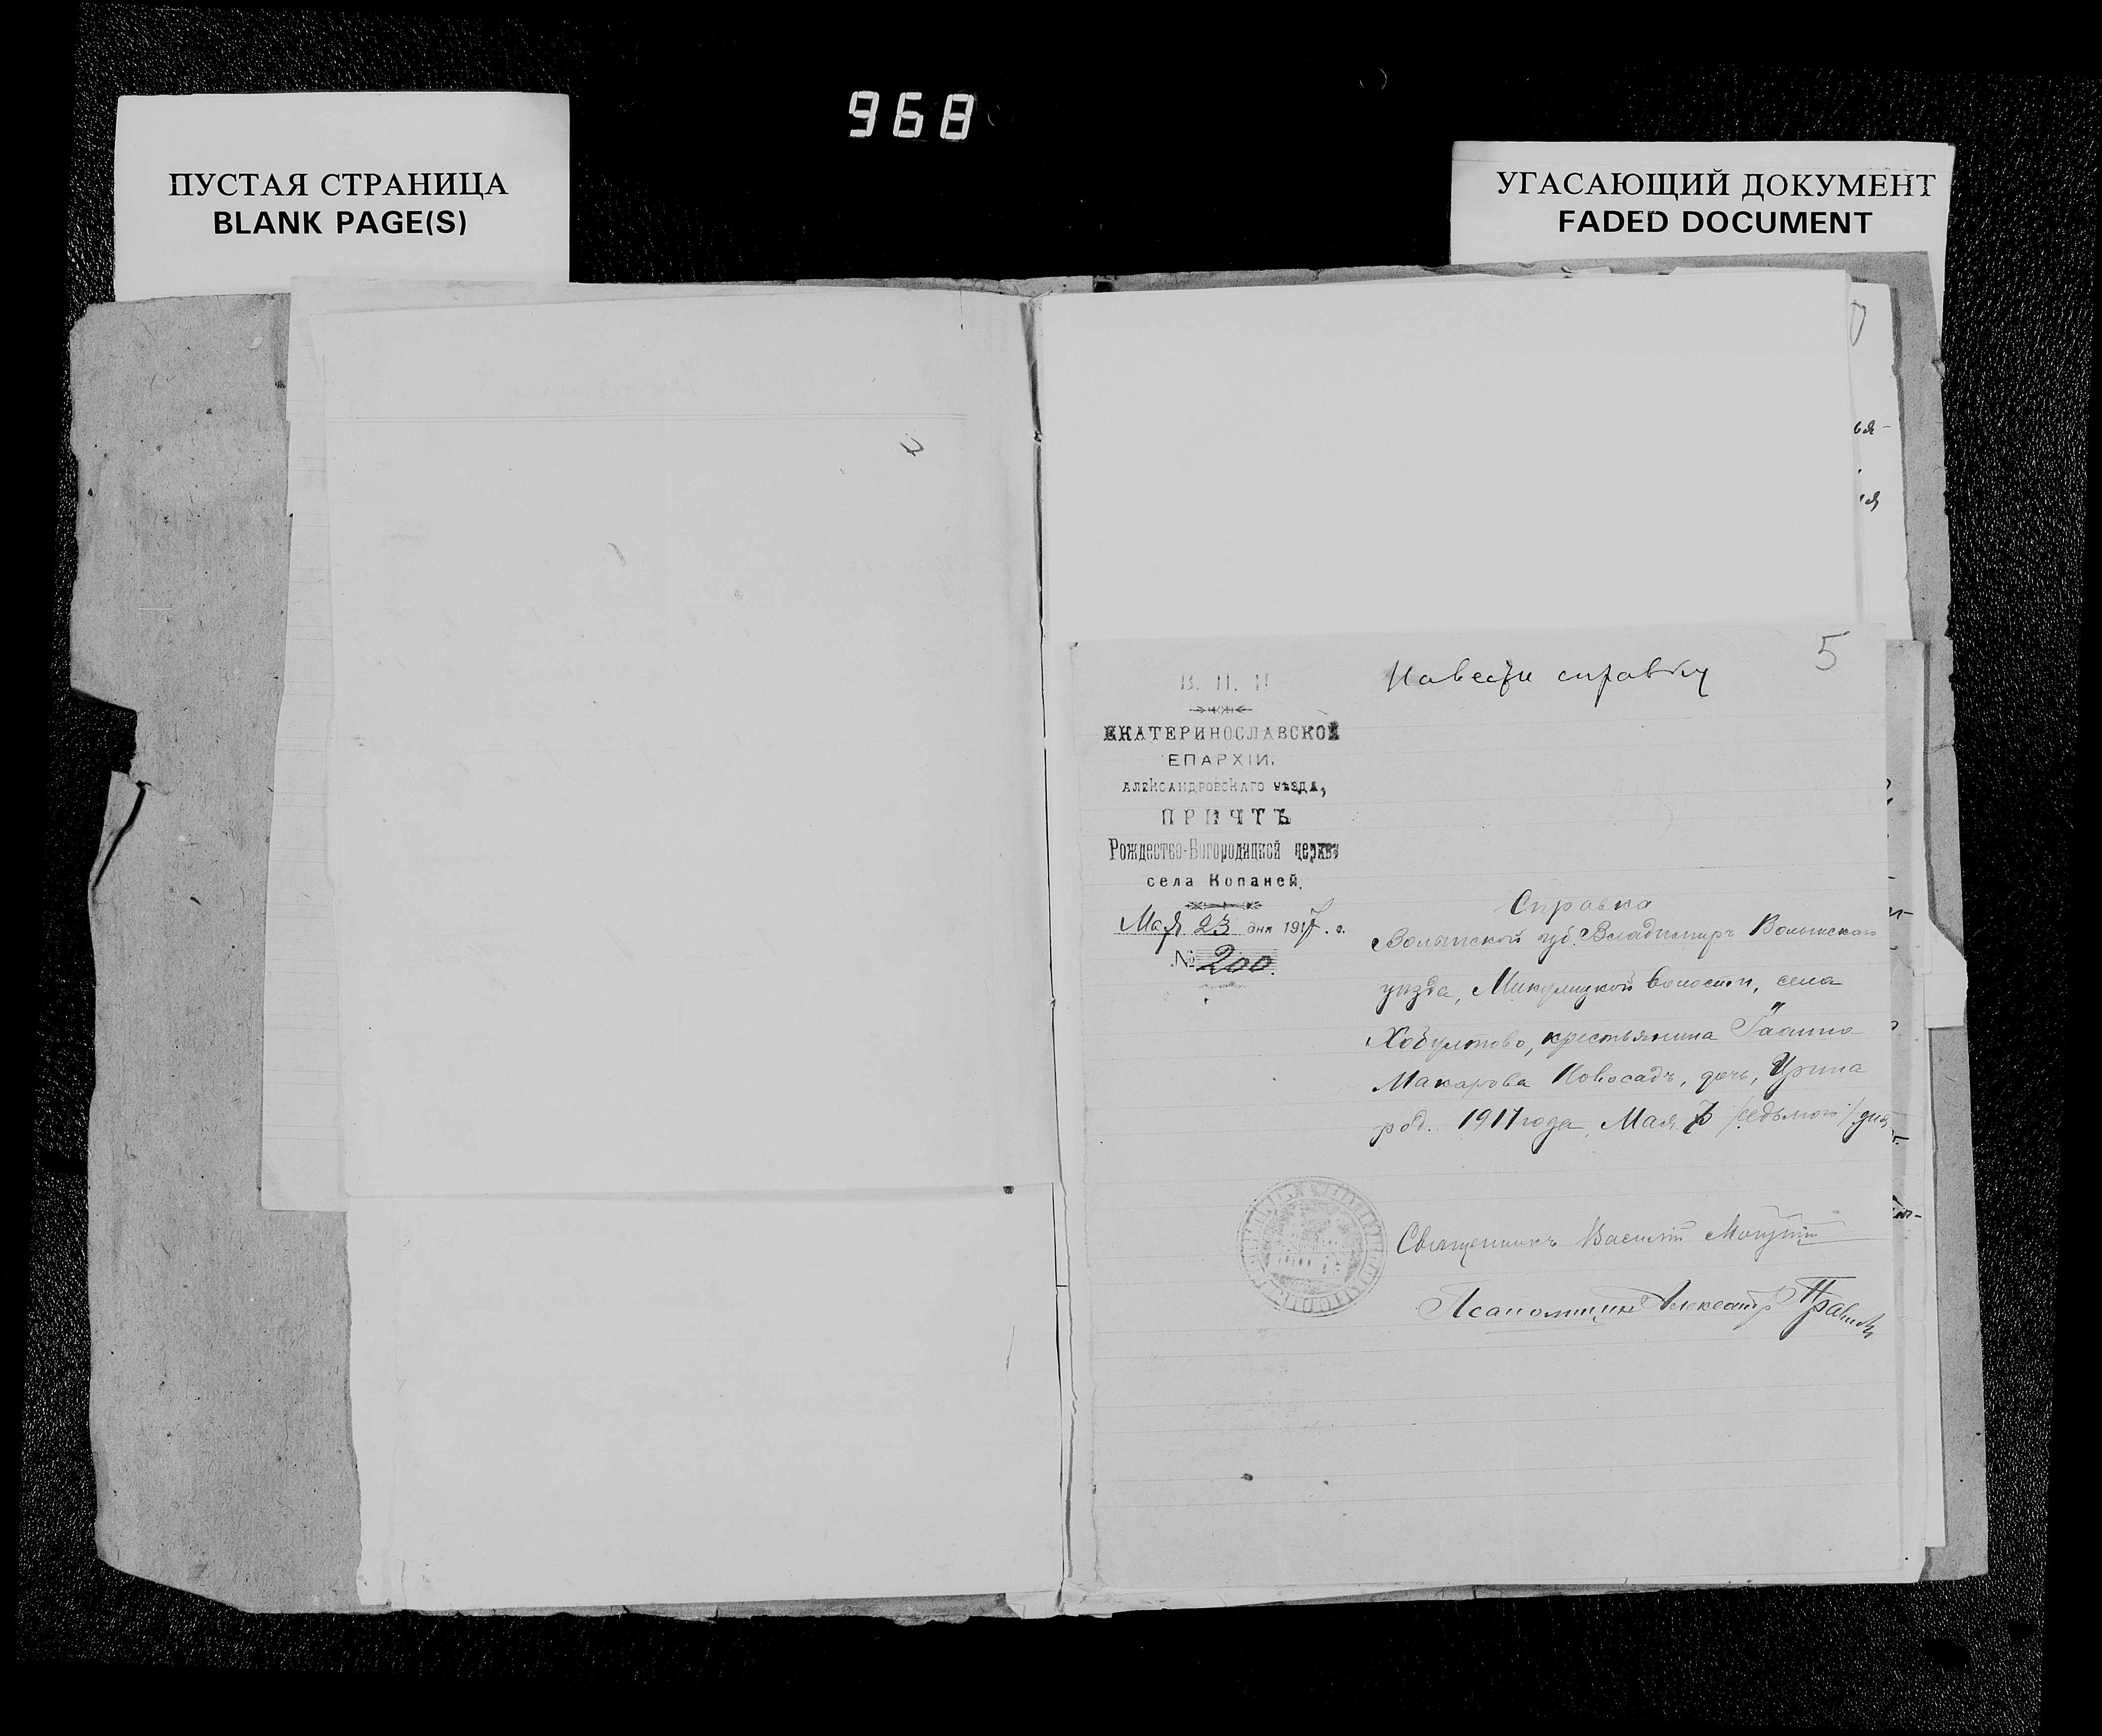 968
ПУСТАЯ СТРАНИЦА
BLANK PAGE(S)
УГАСАЮЩИЙ ДОКУМЕНТ
FADED DOCUMENT
5
Навести справку
В. П. И
ЕКАТЕРИНОСЛАВСКОЙ
ЕПАРХІИ.
АЛЕКСАНДРОВСКАГО УѢЗДА,
ПРИЧТЪ
Рождество-Богородицкой церкви
села Копаней.
Мая 23 дня 1917. г.
№ 200.
Справка
Волынской губ. Владимиръ Волынскаго
уѣзда, Микулицкой волости, села
Хобултово, крестьянина Іоанна
Макарова Новосадъ, дочь, Ирина
род. 1917 года, Мая 7 /седьмого/ дня
Священникъ Василій
Псаломщикъ Александр